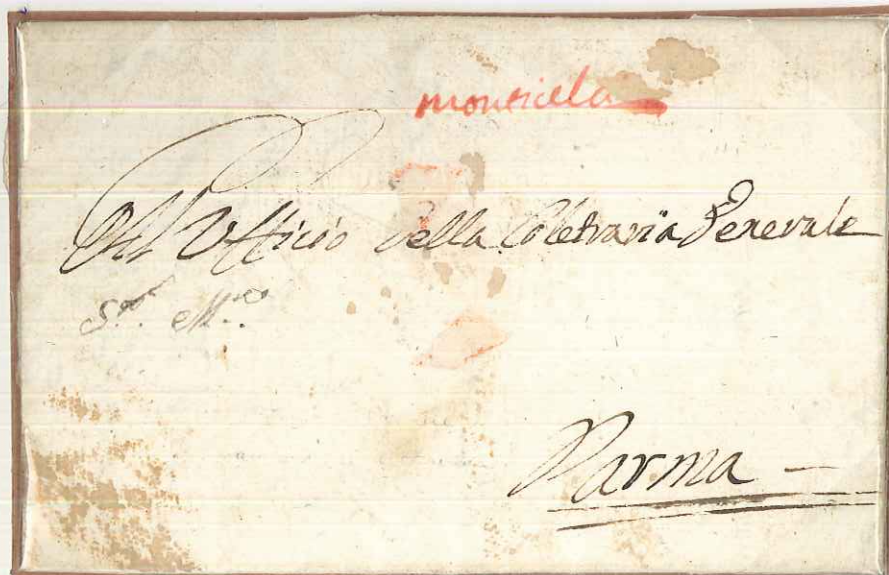 monticela
All Ufficio della Coletraria Generale
S.r M.ro
Parma